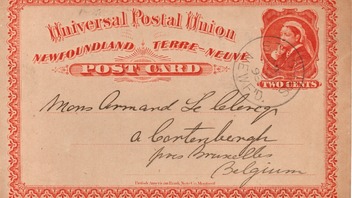 Universal Postal Union
NEWFOUNDLAND TERRE-NEUVE
POST CARD
TWO CENTS
Mons Armand Le Clercq
a Cortenbergh
près Bruxelles
Belgium